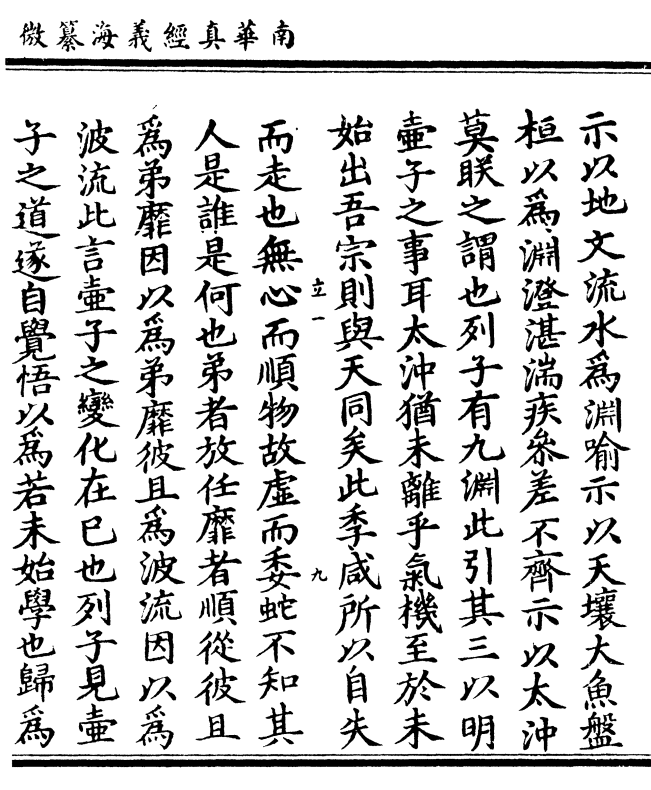 南華真經義海纂微
示以地文流水為淵喻示以天壤大魚盤
桓以為淵澄湛湍疾參差不齊示以太沖
莫眹之謂也列子有九淵此引其三以明
壷子之事耳太沖猶未離乎氣機至於未
始出吾宗則與天同矣此季咸所以自失
立一
九
而走也無心而順物故虛而委蛇不知其
人是誰是何也弟者放任靡者順從彼且
為弟靡因以為弟靡彼且為波流因以為
波流此言壷子之變化在巳也列子見壷
子之道遂自覺悟以為若未始學也歸為